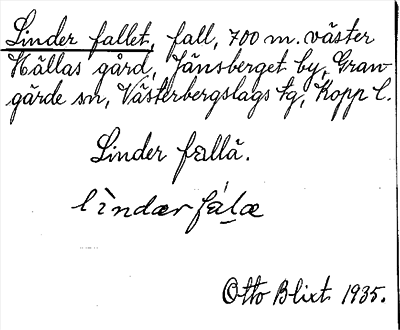 Linder fallet, fall, 700 m. väster
Hällas gård, Jänsberget by, Gran-
gärde sn, Västerbergslags tg, Kopp l.
Linder fallä.
lìndær fálæ
Otto Blixt 1935.